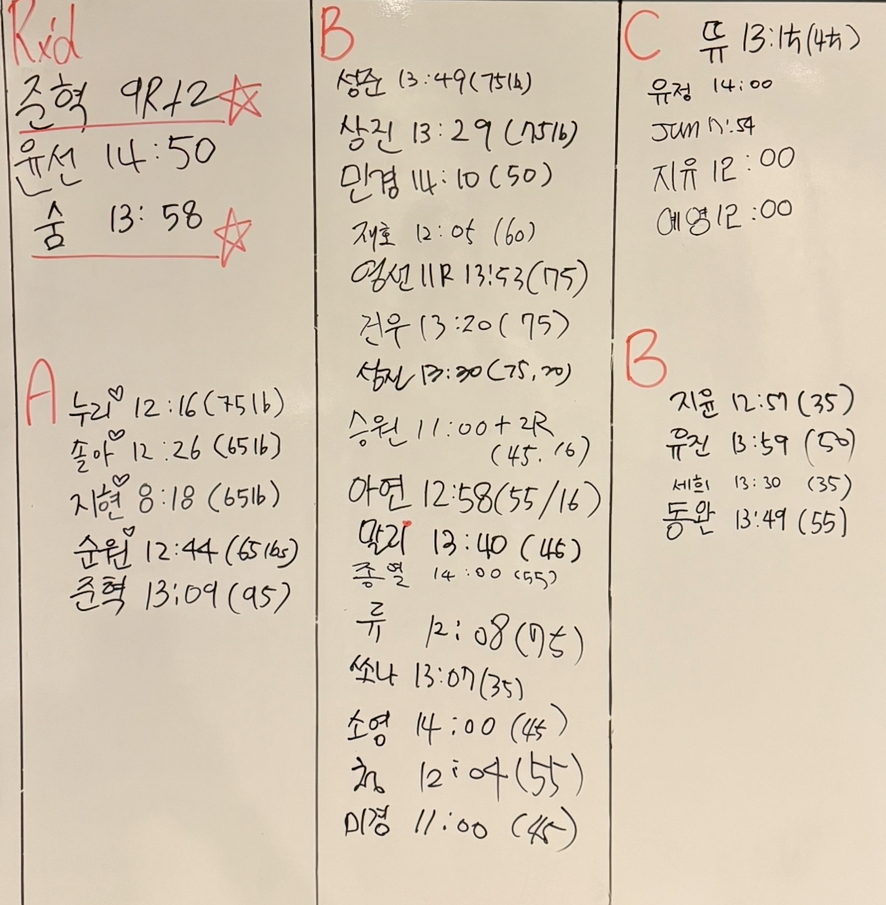 Rx'd
준혁 9R+2
윤선 14:50
숨 13:58
A
누리♡ 12:16(75lb)
솔아♡ 12:26 (65lb)
지현♡ 8:18 (65lb)
순원♡ 12:44(65lbs)
준혁 13:09(95)
B
성준 13:49(75lb)
상진 13:29 (75lb)
민경 14:10(50)
재호 12:05 (60)
영선 11R 13:53(75)
건우 13:20(75)
13:30(75,20)
승원 11:00+2R
(45.16)
아연 12:58(55/16)
말리 13:40 (45)
종열 14:00(55)
류 12:08(75)
쏘나 13:07(35)
소영 14:00 (45)
청 12:04(55)
미경 11:00 (45)
C
뜌 13:15(45)
유정 14:00
Jum
지유 12:00
예영 12:00
B
지윤 12:57(35)
유진 13:59 (50)
세희 13:30 (35)
동완 13:49 (55)